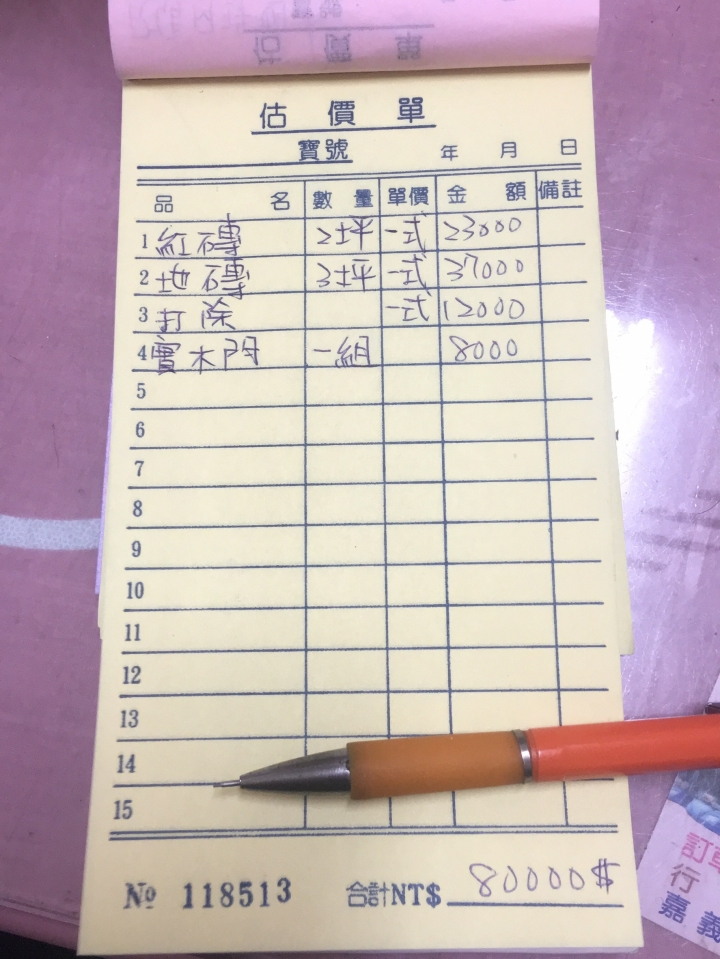 估價單
寶號 年 月 日
品名 數量 單價 金額 備註
1 紅磚 2坪 一式 23000
2 地磚 3坪 一式 37000
3 打除 一式 12000
4 實木門 一組 8000
5
6
7
8
9
10
11
12
13
14
15
№ 118513 合計NT$ 80000$
訂
行
嘉義